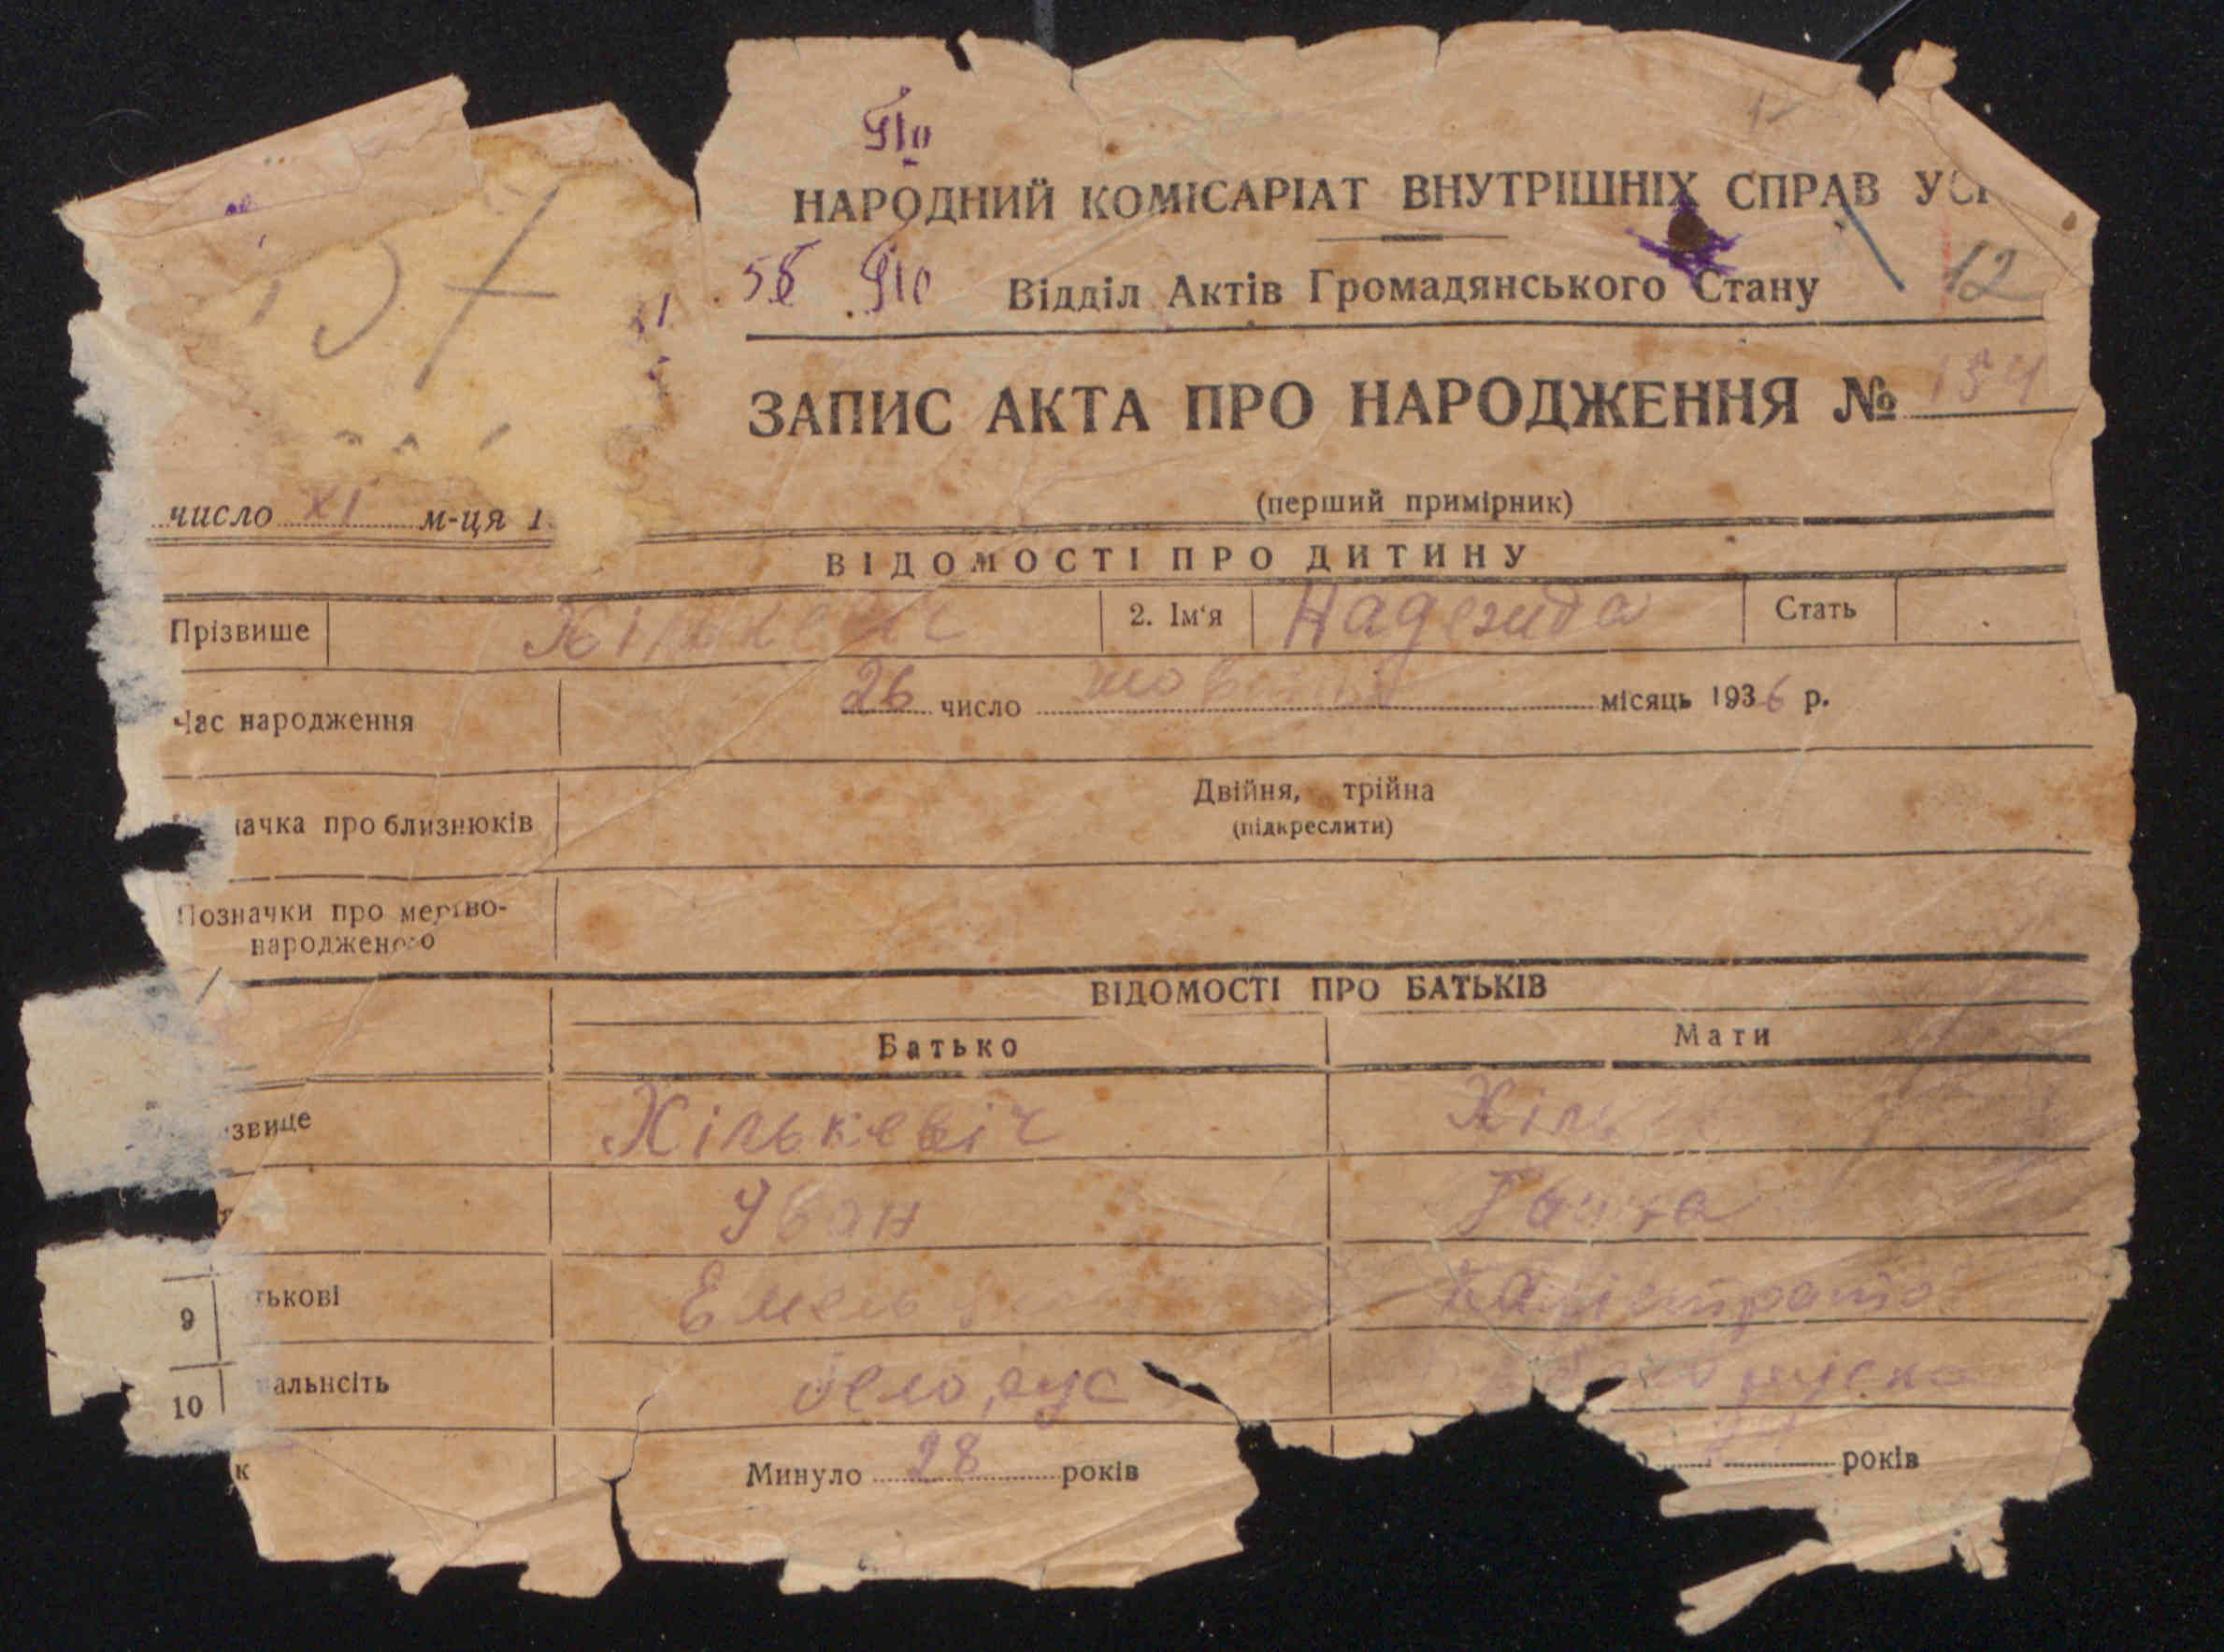 НАРОДНИЙ КОМІСАРІАТ ВНУТРІШНІХ СПРАВ
58
Відділ Актів Громадянського Стану
12
ЗАПИС АКТА ПРО НАРОДЖЕННЯ № 154
число XI м-ця 1
(перший примірник)
ВІДОМОСТІ ПРО ДИТИНУ
Прізвише Хількевіч 2. Ім'я Надезида Стать
Час народження 26 число жовтня місяць 1936 р.
ачка про близнюків Двійня, трійна
(підкреслити)
Позначки про мертво-
народженого
ВІДОМОСТІ ПРО БАТЬКІВ
Батько Мати
звище Хількевіч Хільк
Іван Ганна
9 тькові Емель
10 альнсіть білорус білоруска
к Минуло 28 років років